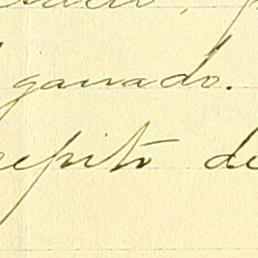 ganado.
repito de